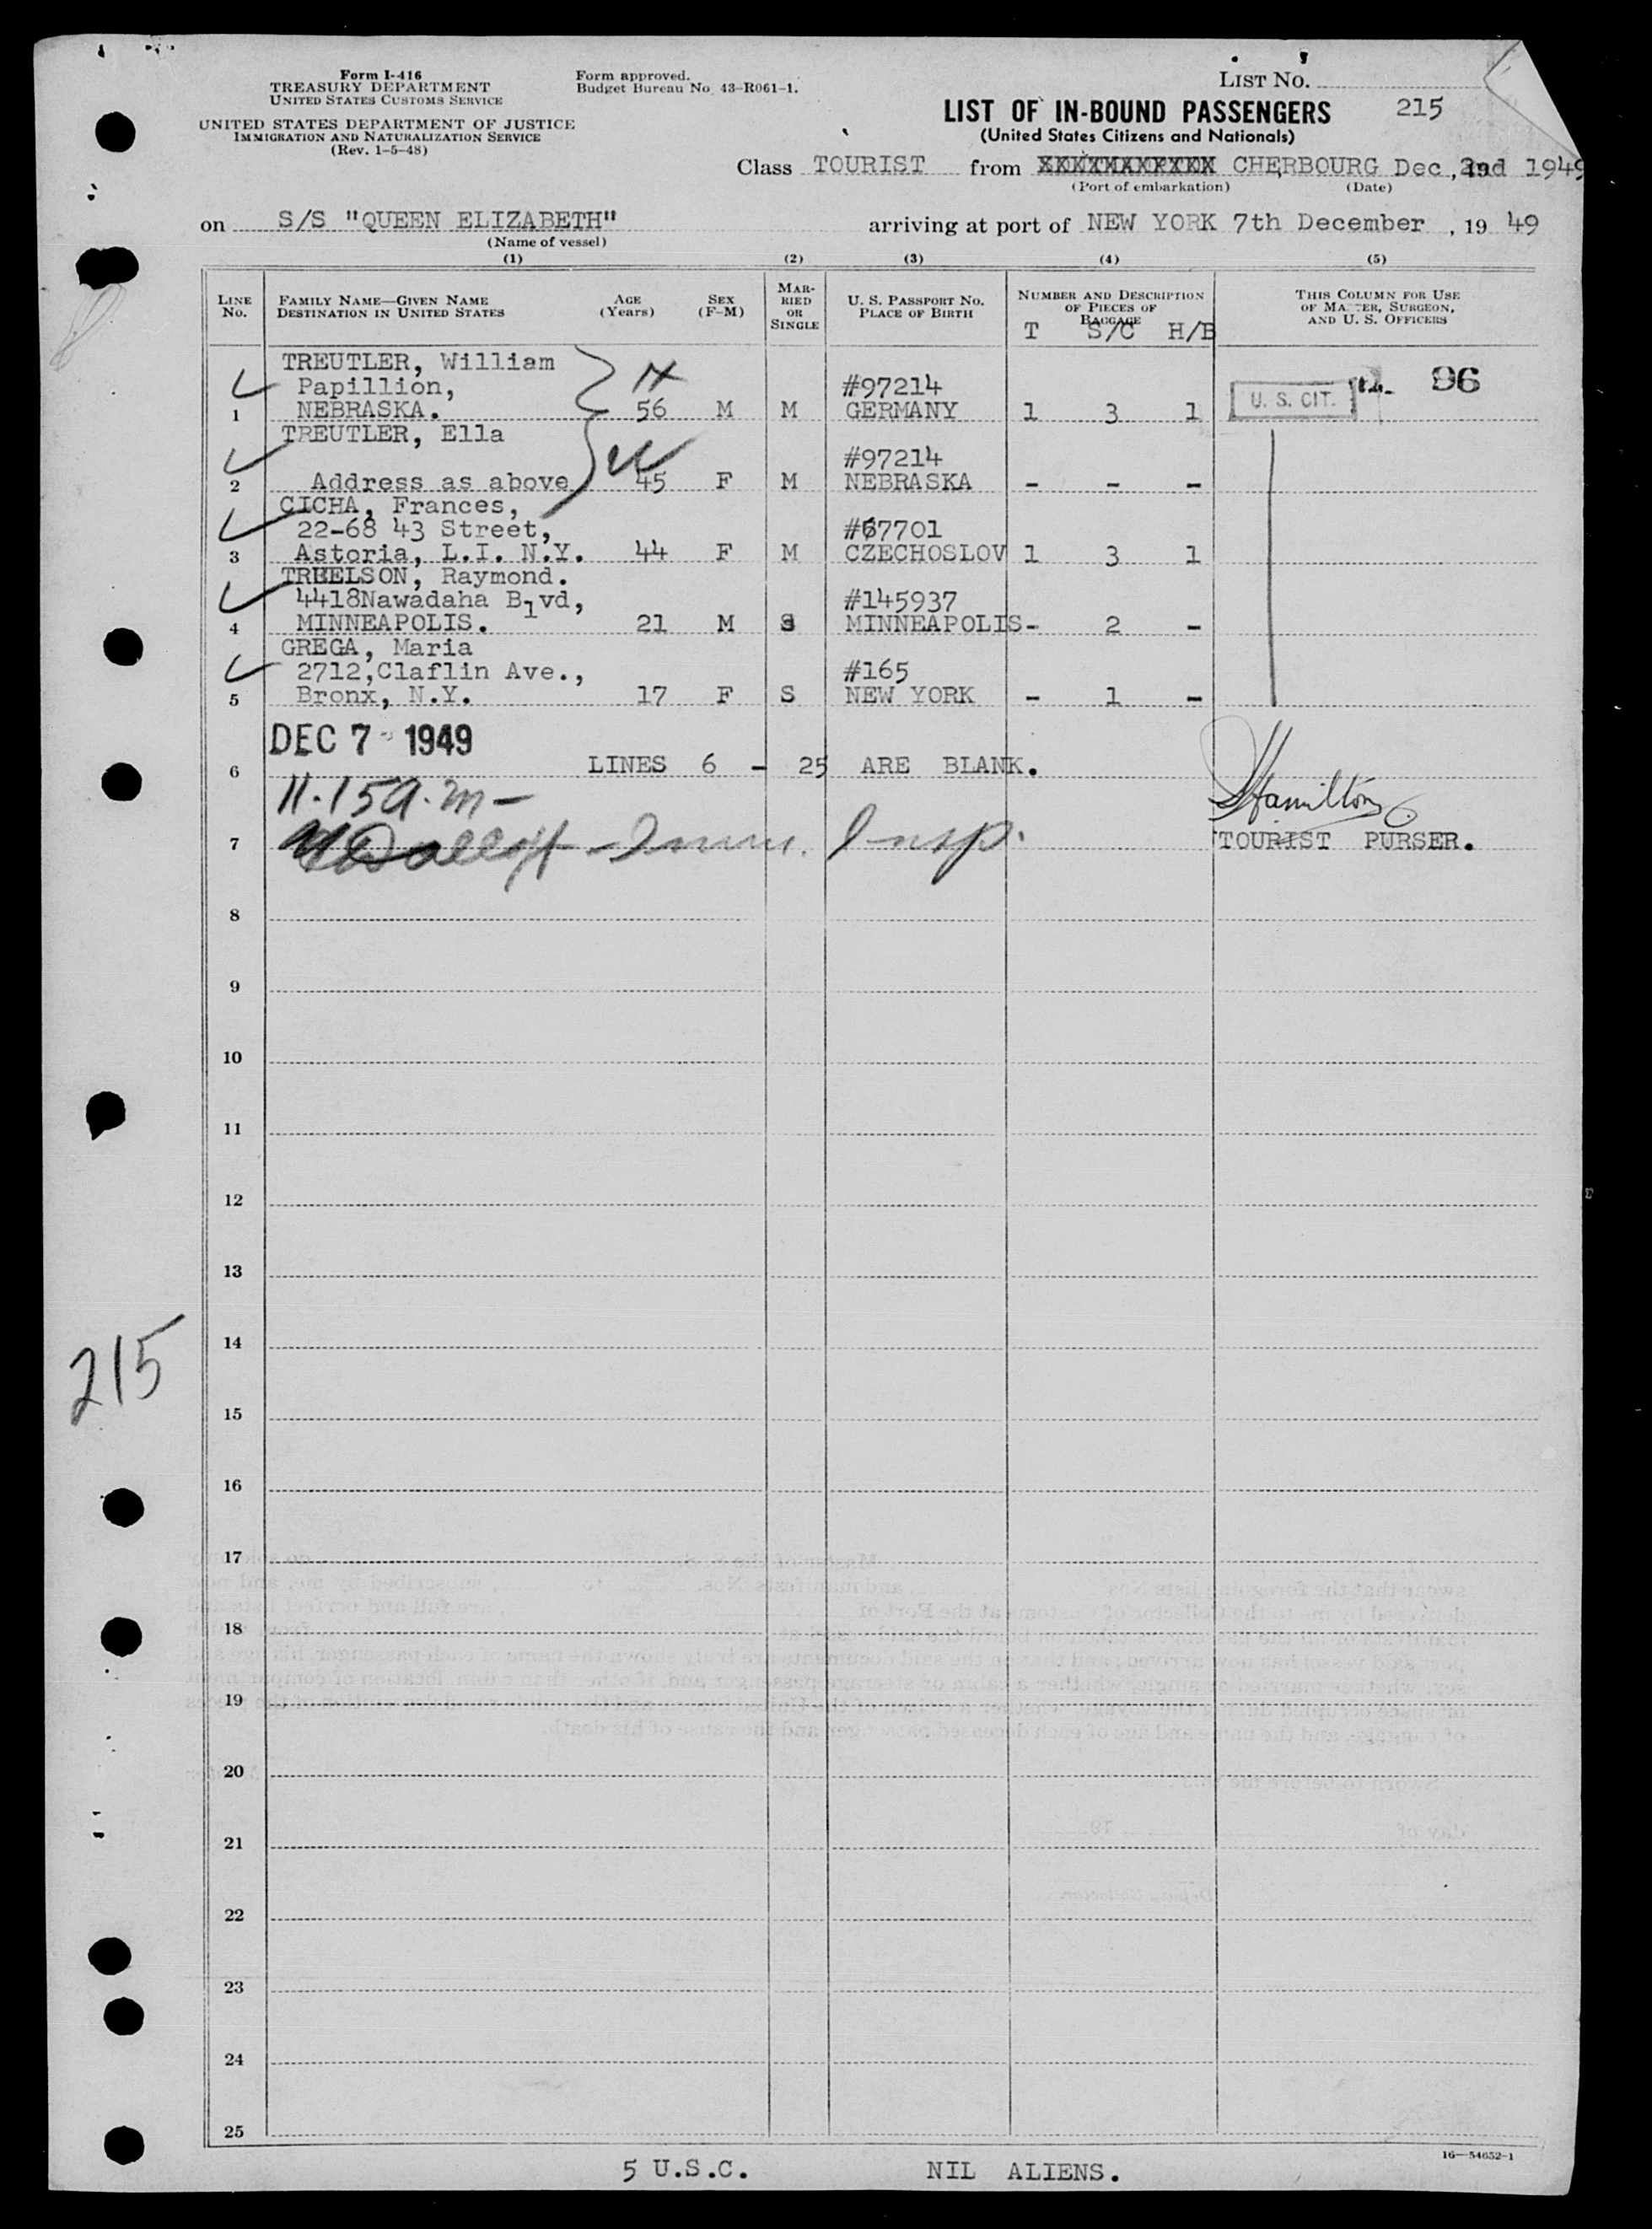 Form I-416
TREASURY DEPARTMENT
UNITED STATES CUSTOMS SERVICE
UNITED STATES DEPARTMENT OF JUSTICE
IMMIGRATION AND NATURALIZATION SERVICE
(Rev. 1-5-48)
Form approved.
Budget Bureau No. 43-R061-1.
LIST No.
LIST OF IN-BOUND PASSENGERS 215
(United States Citizens and Nationals)
Class TOURIST from CHERBOURG Dec, 2nd 1949
(Port of embarkation) (Date)
on S/S "QUEEN ELIZABETH" arriving at port of NEW YORK 7th December, 19 49
(Name of vessel)
(1) (2) (3) (4) (5)
LINE No. FAMILY NAME—GIVEN NAME DESTINATION IN UNITED STATES AGE (Years) SEX (F-M) MARRIED OR SINGLE U. S. PASSPORT No. PLACE OF BIRTH NUMBER AND DESCRIPTION OF PIECES OF BAGGAGE THIS COLUMN FOR USE OF MASTER, SURGEON, AND U. S. OFFICERS
T S/C H/B
TREUTLER, William
Papillion, #97214 U. S. CIT. 96
1 NEBRASKA. 56 M M GERMANY 1 3 1
TREUTLER, Ella
#97214
2 Address as above 45 F M NEBRASKA - - -
CICHA, Frances,
22-68 43 Street, #67701
3 Astoria, L.I. N.Y. 44 F M CZECHOSLOV 1 3 1
TRUELSON, Raymond.
4418Nawadaha Blvd, #145937
4 MINNEAPOLIS. 21 M S MINNEAPOLIS - 2 -
GREGA, Maria
2712,Claflin Ave., #165
5 Bronx, N.Y. 17 F S NEW YORK - 1 -
DEC 7 1949
6 LINES 6 - 25 ARE BLANK.
11.15a.m- Hamilton
7 Imm. Insp. TOURIST PURSER.
8
9
10
11
12
13
14
215
15
16
17
18
19
20
21
22
23
24
25
16—54652-1
5 U.S.C. NIL ALIENS.